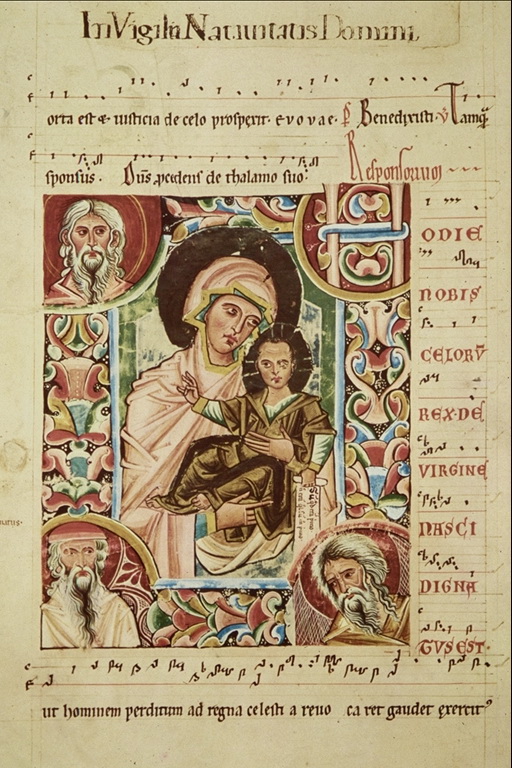 In Vigilia Natiuitatis Domini
orta est & iusticia de celo prosperit. e v o v a e. Benedixisti. Tamq̄
sponsus. Dn̄s pcedens de thalamo suo. Responsoriuᷓ
H
ODIE
NOBIS
CELORV̄
REX·DE
VIRGINE
NASCI
DIGNA
TUS EST
ut hominem perditum ad regna celesti a reuo ca ret gaudet exercitꝰ